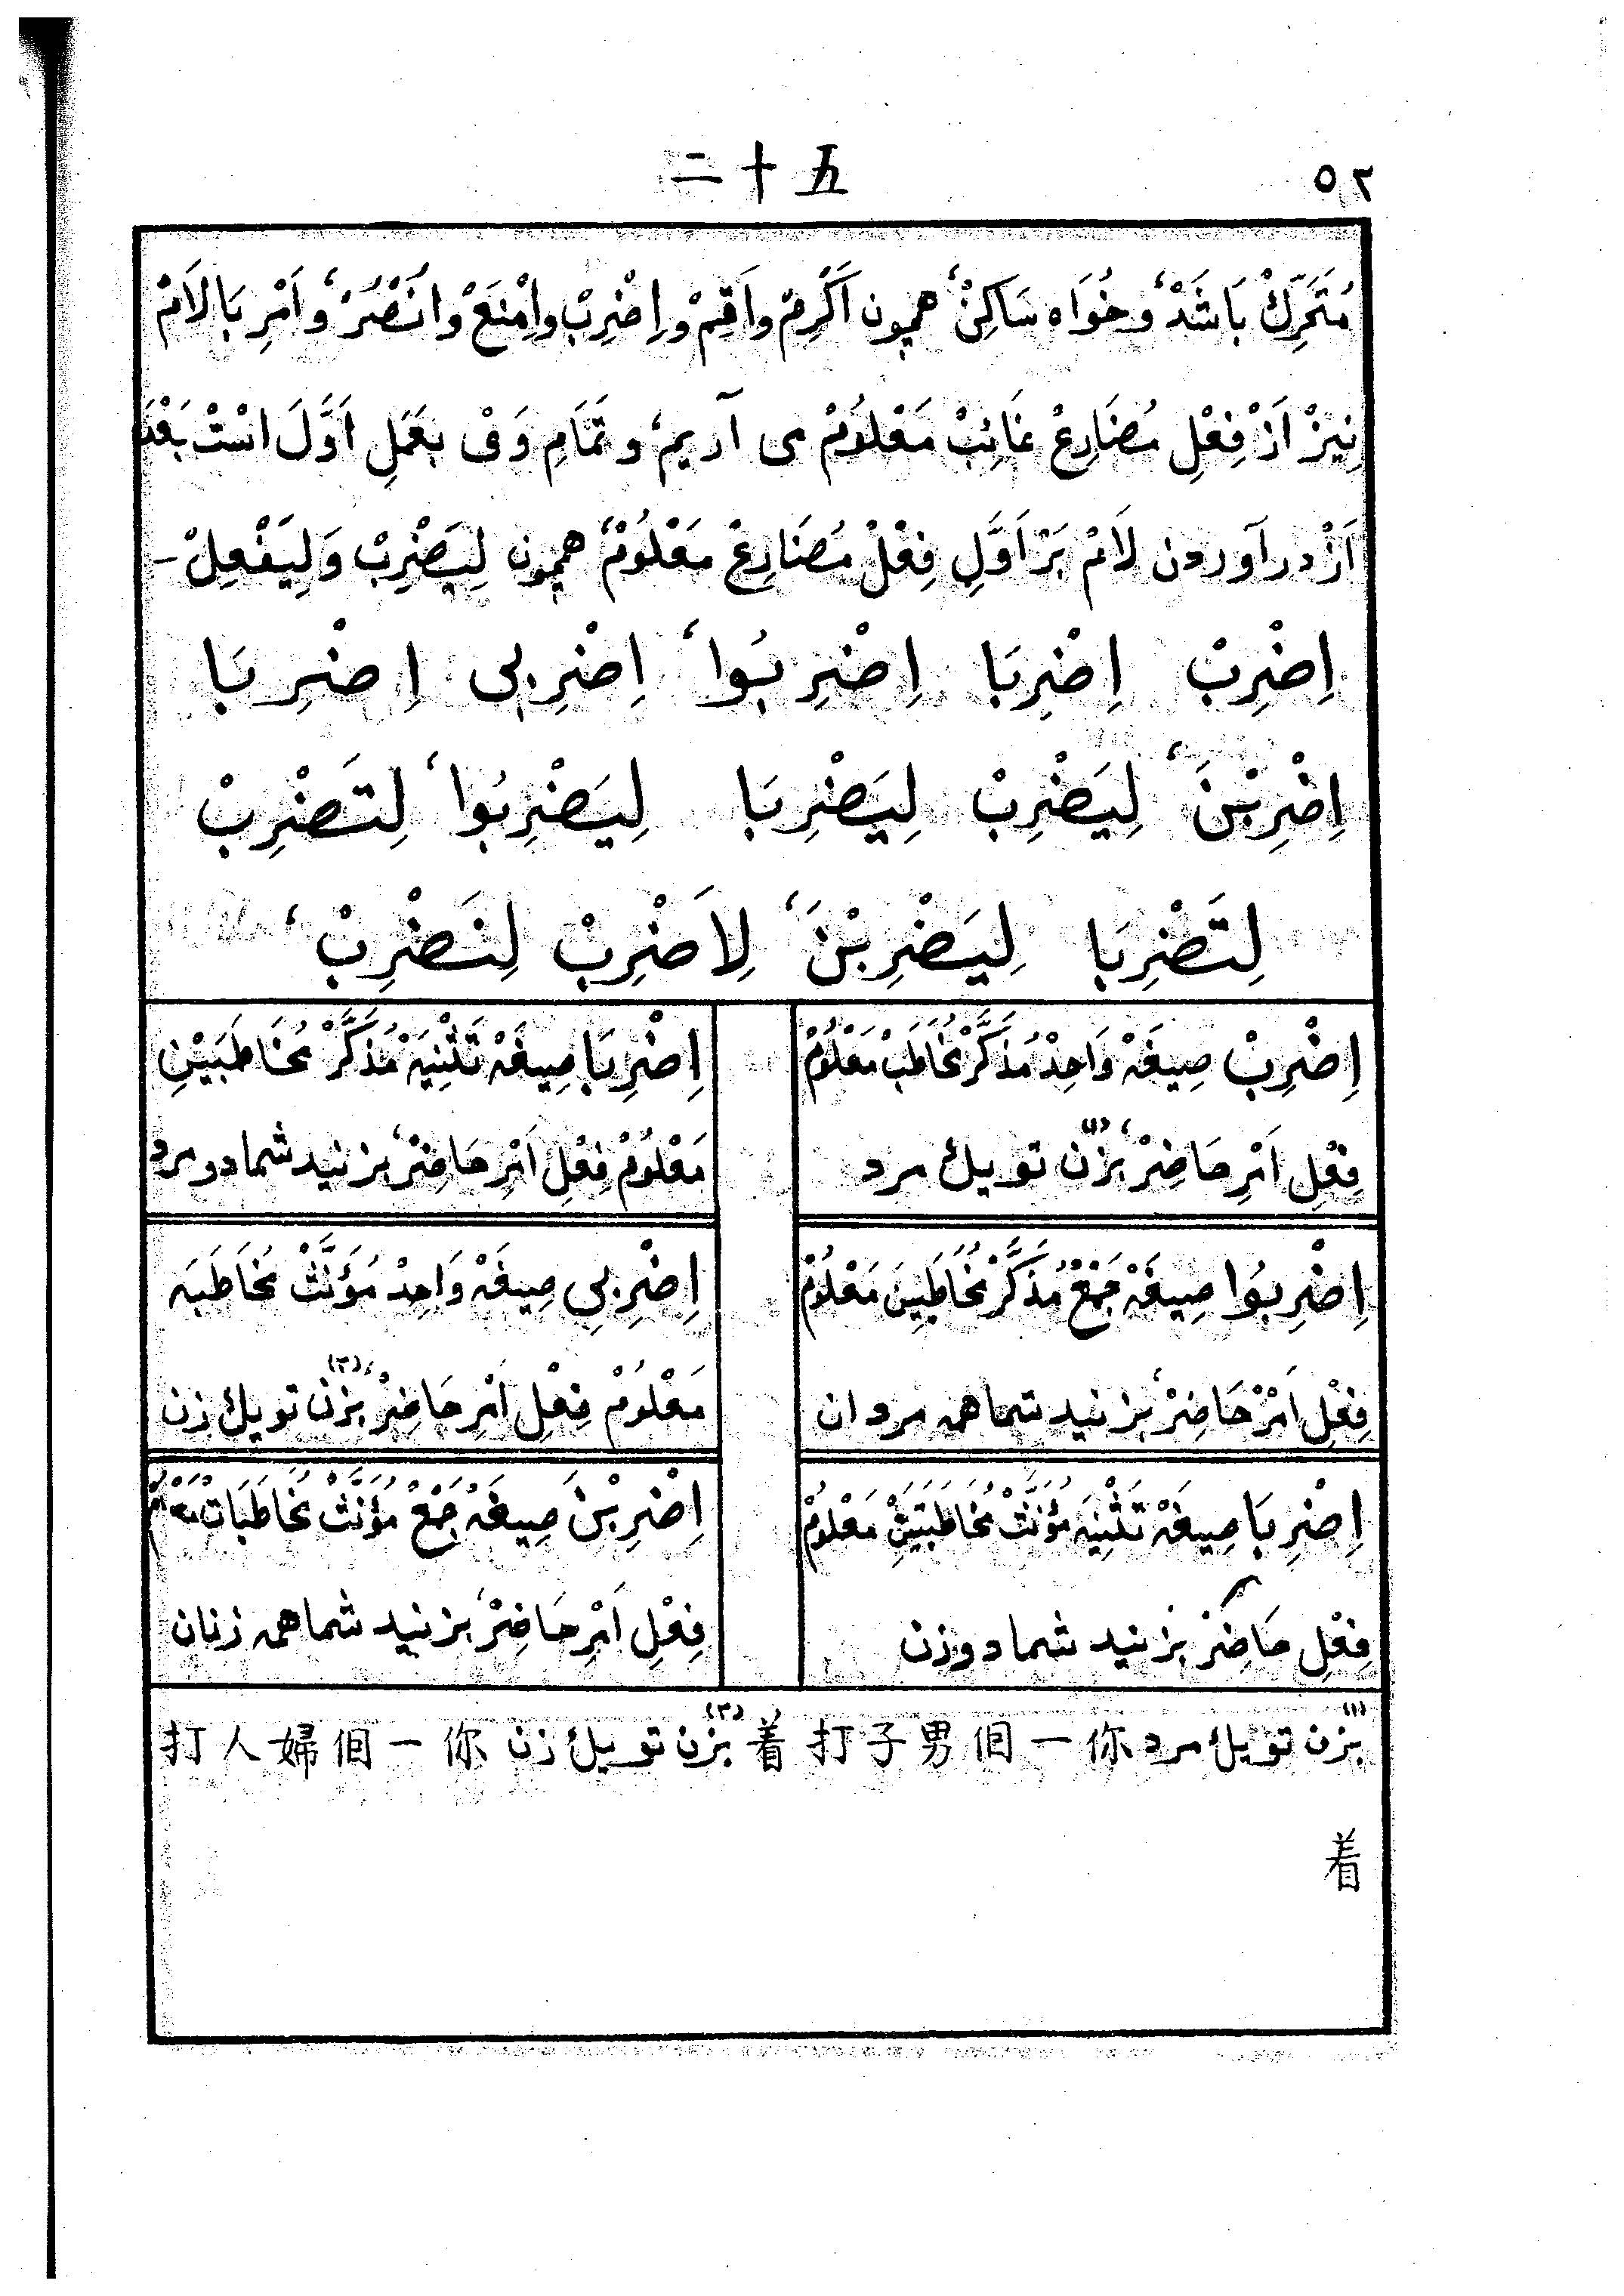 五十二
٥٢
مُتَحَرِّكْ بَاشَدْ، وخُوَاه سَاكِنْ، همچون اَكْرِمْ واَقِمْ واِضْرِبْ واِمْنَعْ واُنْصُرْ، واَمْرِ بَا لَامْ
نِيزْ اَزْ فِعْلِ مُضَارِعْ غَائِبْ مَعْلُومْ مى آريم، و تَمَامِ وَقْ بعَمَلِ اَوَّلَ اسْتْ بَعْدَ
اَزْ درآوردن لَامْ بَرْ اَوَّلِ فِعْلْ مُضَارِعْ مَعْلُومْ، همچون لِيَضْرِبْ وَلِيَفْعِلْ -
اِضْرِبْ اِضْرِبَا اِضْرِبُوا، اِضْرِبِى اِضْرِبَا
اِضْرِبْنَ، لِيَضْرِبْ لِيَضْرِبَا لِيَضْرِبُوا، لِتَضْرِبْ
لِتَضْرِبَا لِيَضْرِبْنَ، لِاَضْرِبْ لِنَضْرِبْ،
اِضْرِبْ صِيغَهْ وَاحِدْ مُذَكَّرْ مُخَاطَبْ مَعْلُومْ
فِعْلِ اَمْرِ حَاضِرْ، بزن (١) تو يك مرد
اِضْرِبَا صِيغَهْ تَثْنِيَهْ مُذَكَّرْ مُخَاطَبَيْنِ
مَعْلُومْ فِعْلِ اَمْرِ حَاضِرْ، بزنيد شما دو مرد
اِضْرِبُوا صِيغَهْ جَمْعْ مُذَكَّرْ مُخَاطَبِينَ مَعْلُومْ
فِعْلِ اَمْرْ حَاضِرْ، بزنيد شما همه مردان
اِضْرِبِي صِيغَهْ وَاحِدْ مُؤَنَّثْ مُخَاطَبَه
مَعْلُومْ فِعْلِ اَمْرِ حَاضِرْ، بزن (٢) تو يك زن
اِضْرِبَا صِيغَهْ تَثْنِيَه مُؤَنَّثْ مُخَاطَبَتَيْنِ مَعْلُومْ
فِعْلِ حَاضِرْ بزنيد شما دو زن
اِضْرِبْنَ صِيغَهْ جَمْعْ مُؤَنَّثْ مُخَاطَبَاتْ مَعْلُومْ
فِعْلِ اَمْرِ حَاضِرْ، بزنيد شما همه زنان
(١) بزن تو يك مرد 你一個男子打着 (٢) بزن تو يك زن 你一個婦人打
着